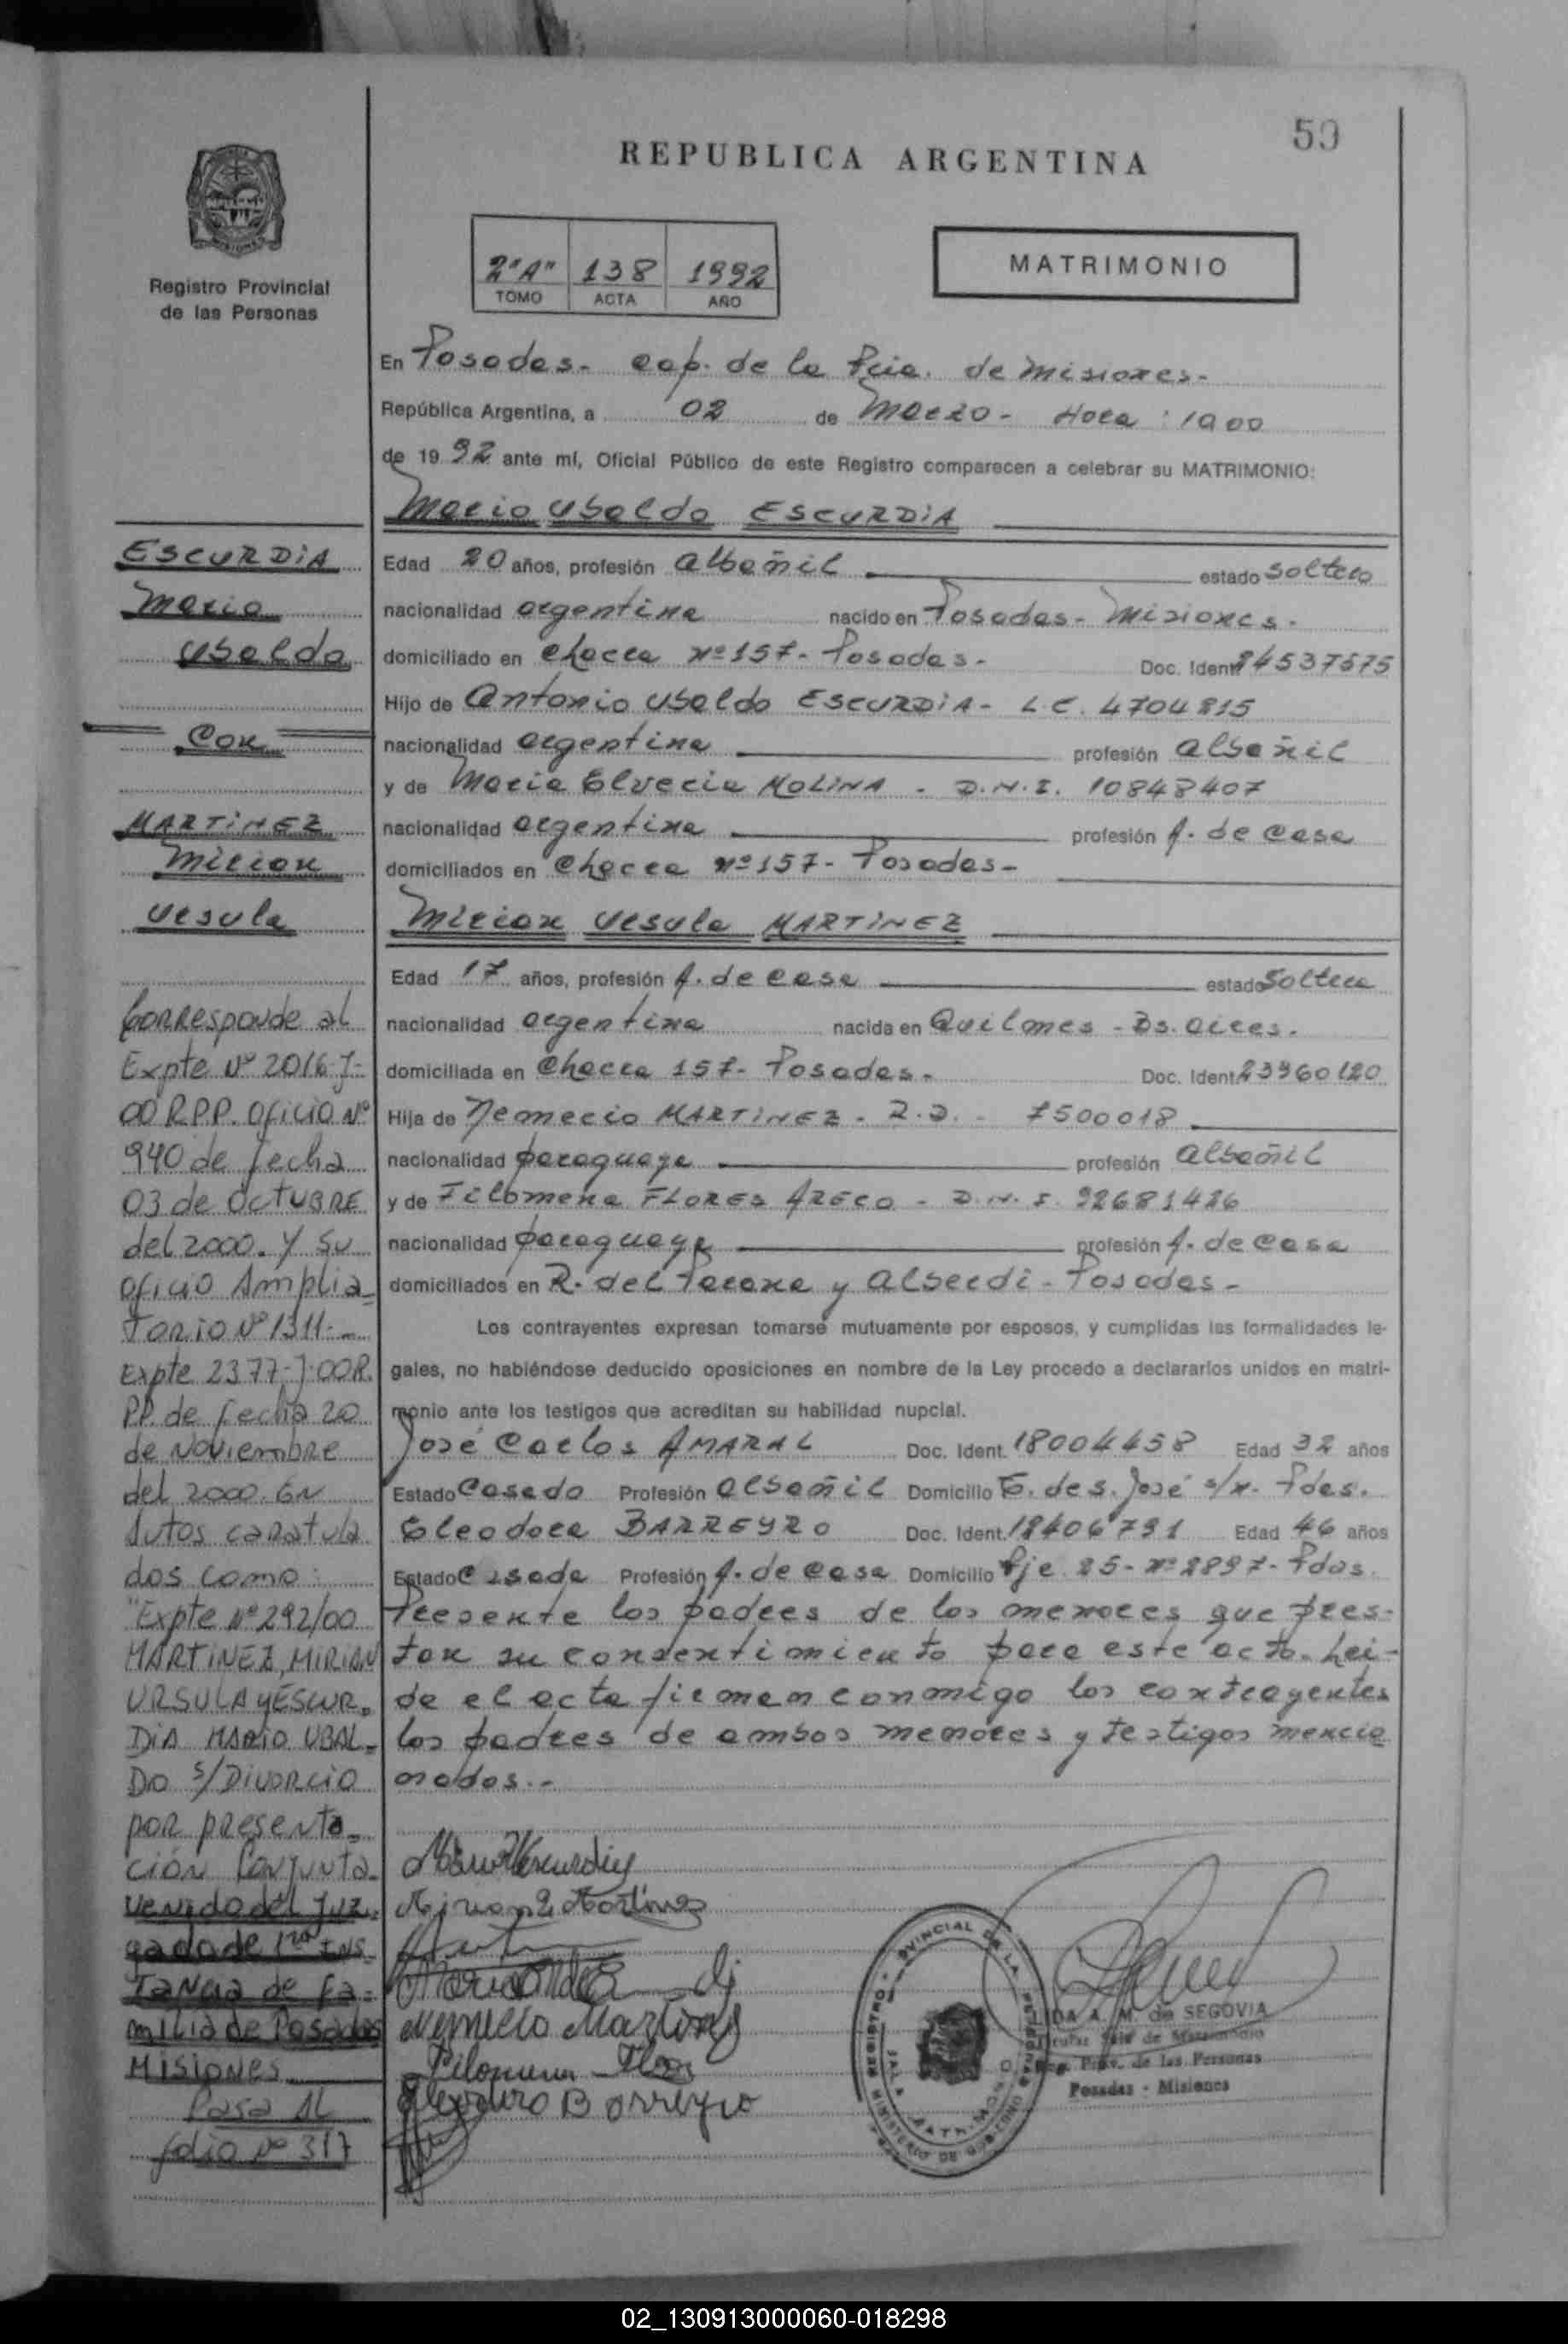 59
REPUBLICA ARGENTINA
2"A" 138 1992
TOMO ACTA AÑO
MATRIMONIO
Registro Provincial
de las Personas
En Posadas- cap. de la Pcia. de Misiones-
República Argentina, a 02 de Marzo- Hora : 1900
de 1992 ante mí, Oficial Público de este Registro comparecen a celebrar su MATRIMONIO:
Mario Ubaldo ESCURDIA
Edad 20 años, profesión albañil estado soltero
nacionalidad argentina nacido en Posadas- Misiones.
domiciliado en Chacra nº 157- Posadas- Doc. Ident.
Hijo de Antonio Ubaldo ESCURDIA- L.E. 4704815
nacionalidad argentina profesión albañil
y de Maria Elvecia MOLINA - D.N.I. 10848407
nacionalidad argentina profesión A. de casa
domiciliados en Chacra nº 157- Posadas-
Mirian Ursula MARTINEZ
Edad 17 años, profesión A. de casa estado Soltera
nacionalidad argentina nacida en Quilmes - Bs. aires.
domiciliada en Chacra 157- Posadas- Doc. Ident. 23960120
Hija de Nemecio MARTINEZ - 7500018
nacionalidad paraguaya profesión albañil
y de Filomena FLORES ARECO - D.N.I. 92681426
nacionalidad paraguaya profesión A. de casa
domiciliados en R. del Parana y Alberdi - Posadas-
Los contrayentes expresan tomarse mutuamente por esposos, y cumplidas las formalidades le-
gales, no habiéndose deducido oposiciones en nombre de la Ley procedo a declararlos unidos en matri-
monio ante los testigos que acreditan su habilidad nupcial.
José Carlos AMARAL Doc. Ident. 18004458 Edad 32 años
Estado Casado Profesión albañil Domicilio E. de S. José s/n. Pdas.
Eleodora BARREYRO Doc. Ident. 18406791 Edad 46 años
Estado Casada Profesión A. de casa Domicilio Pje. 25- nº 2897- Pdas.
Presente los padres de los menores que pres-
tan su consentimiento para este acto. Lei-
da el acta firman conmigo los contrayentes
los padres de ambos menores y testigos mencio
nados.-
ESCURDIA
Mario
Ubaldo
Con
MARTINEZ
Mirian
Ursula
Corresponde al
Expte Nº 2016-J-
00 R.P.P. Oficio Nº
940 de fecha
03 de OCTUBRE
del 2000. Y Su
oficio Amplia-
TORIO Nº 1311-
Expte 2377-J-00R.
P.P. de fecha 20
de Noviembre
del 2000. EN
Autos caratula
dos como:
"Expte Nº 292/00
MARTINEZ, MIRIAN
URSULA y ESCUR-
DIA MARIO UBAL-
DO s/ DIVORCIO
por presenta-
ción Conjunta-
venido del Juz-
gado de 1ra INS-
TANCIA de Fa-
milia de Posadas
MISIONES
Pasa Al
folio Nº 317
Nemecio Martinez
Filomena Flores
Barreyro
REGISTRO PROVINCIAL DE LAS PERSONAS
MINISTERIO DE GOBIERNO
A. M. de SEGOVIA
Reg. Prov. de las Personas
Posadas - Misiones
02_130913000060-018298